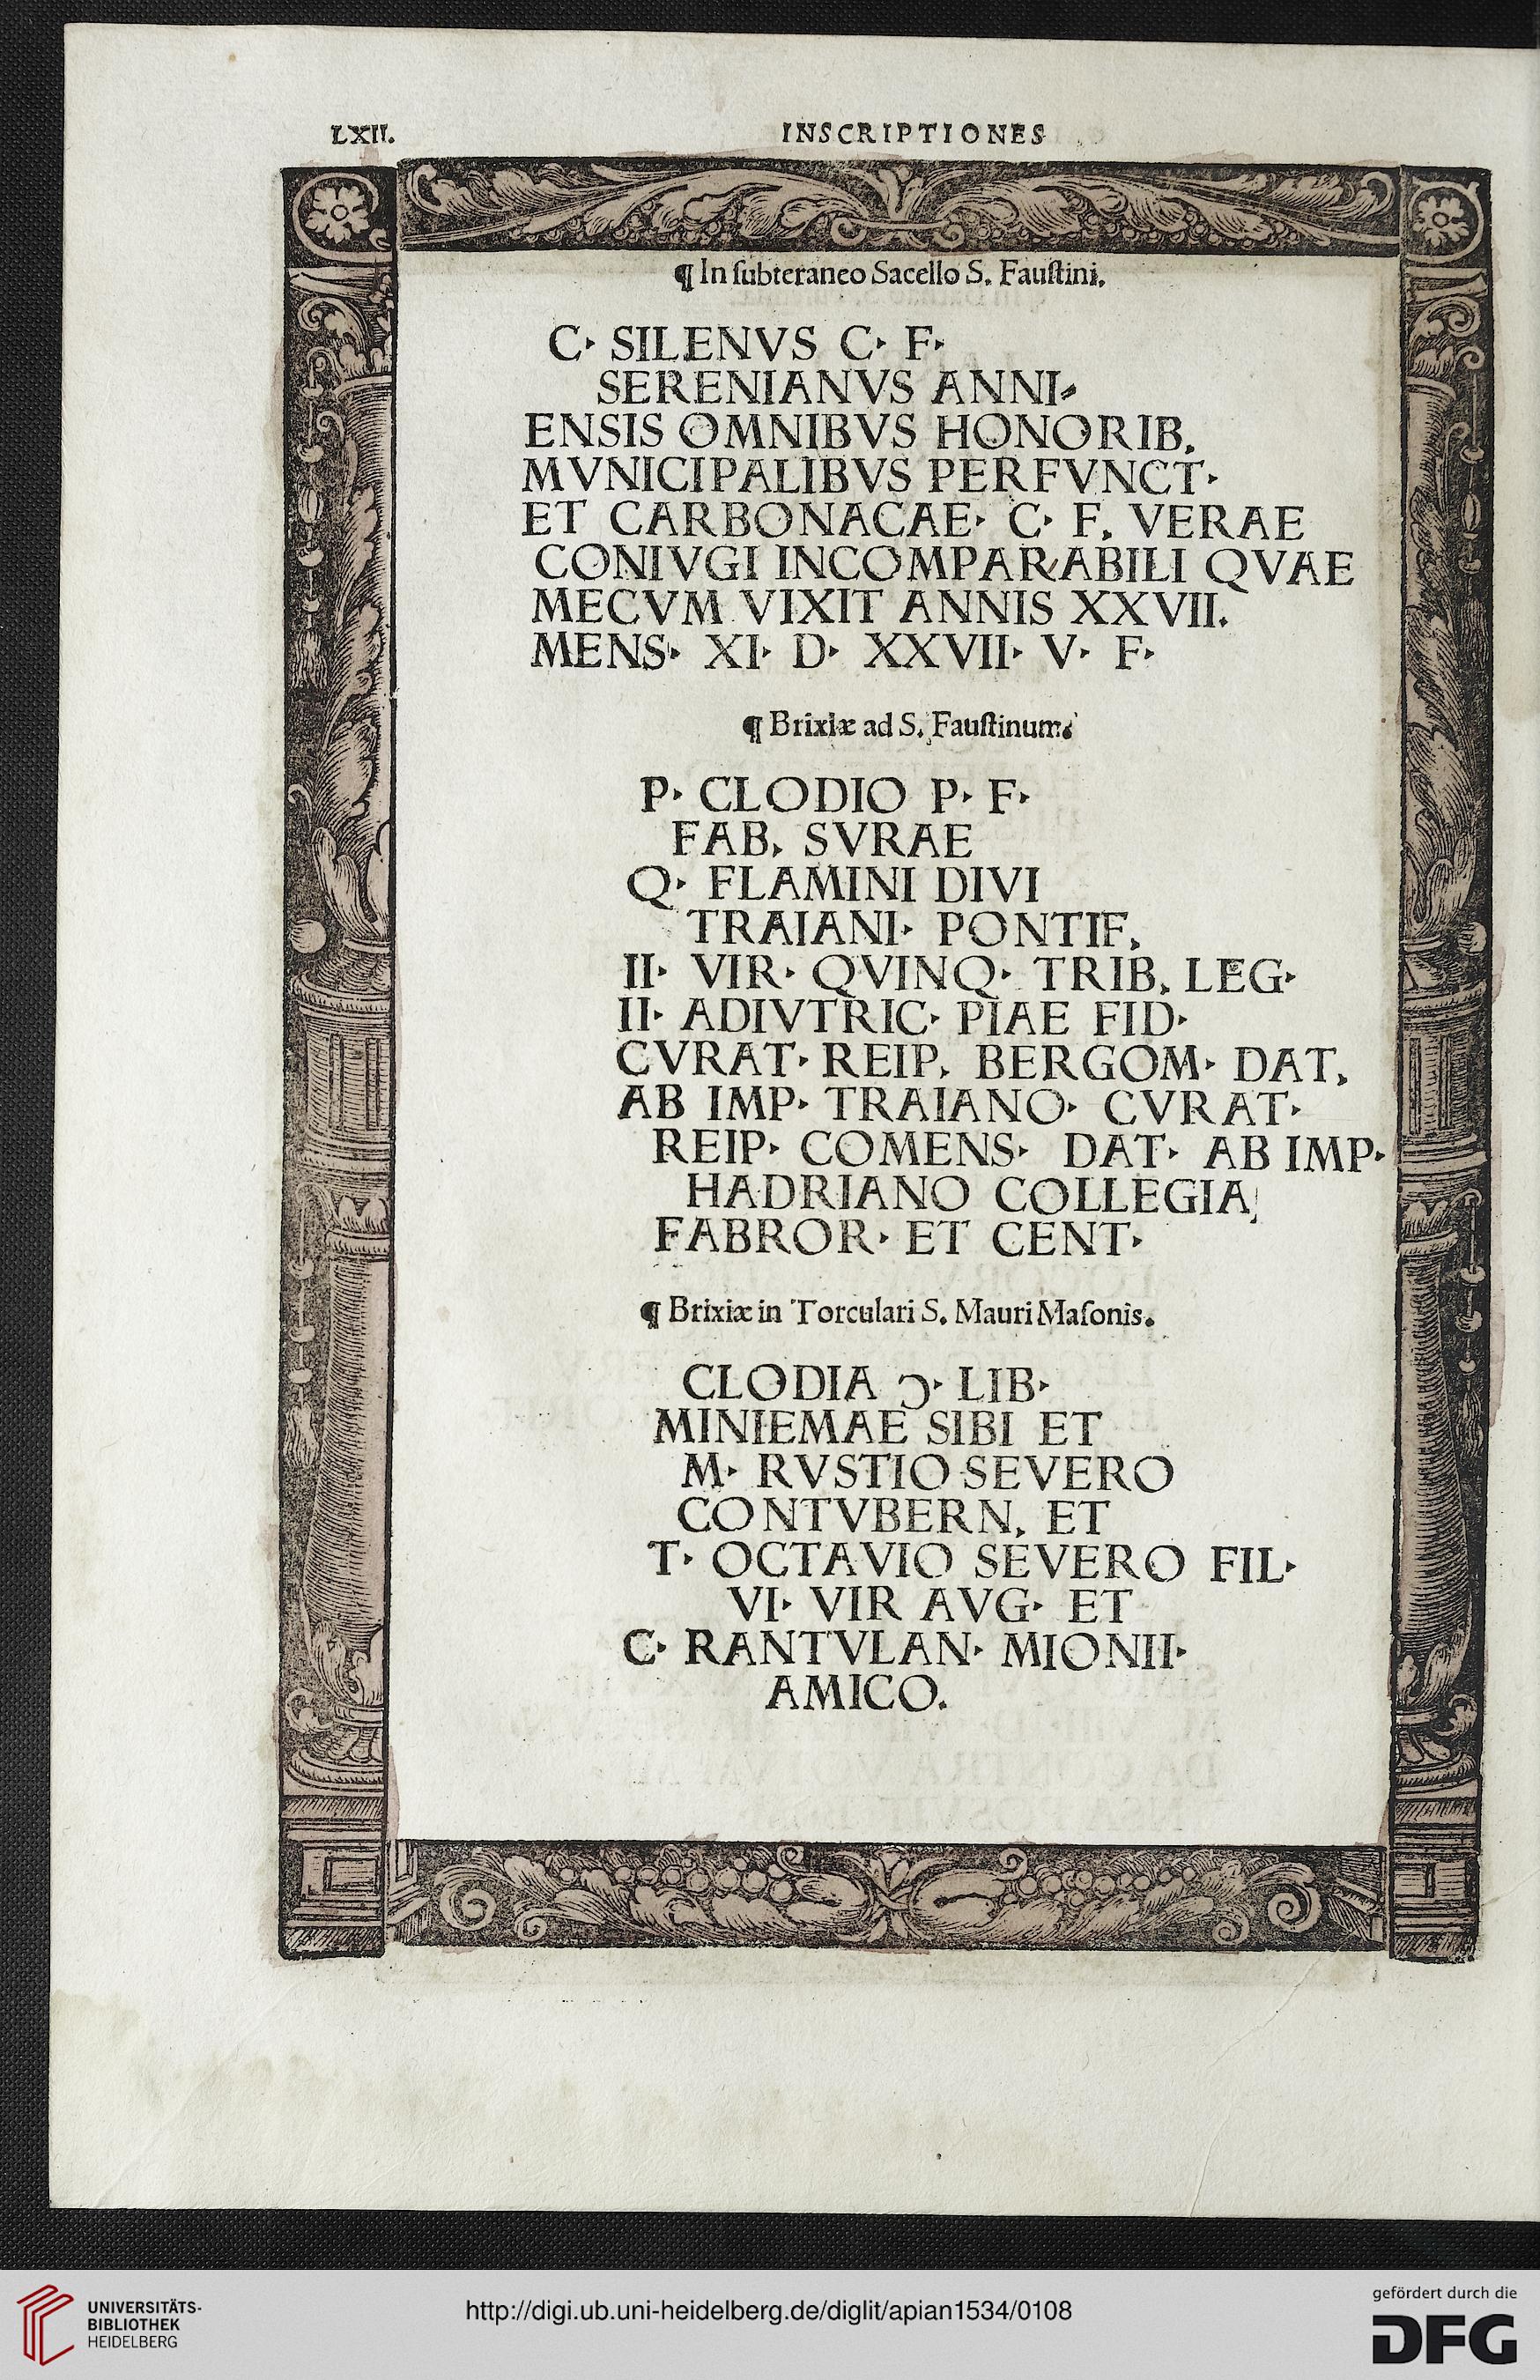 LXII.
INSCRIPTIONES
¶ In ſubteraneo Sacello S. Fauſtini.
C· SILENVS C· F·
SERENIANVS ANNI⸗
ENSIS OMNIBVS HONORIB.
MVNICIPALIBVS PERFVNCT·
ET CARBONACAE· C· F. VERAE
CONIVGI INCOMPARABILI QVAE
MECVM VIXIT ANNIS XXVII.
MENS· XI· D· XXVII· V· F·
¶ Brixiæ ad S. Fauſtinum.
P· CLODIO P· F·
FAB. SVRAE
Q· FLAMINI DIVI
TRAIANI· PONTIF.
II· VIR· QVINQ· TRIB. LEG·
II· ADIVTRIC· PIAE FID·
CVRAT· REIP. BERGOM· DAT.
AB IMP· TRAIANO· CVRAT·
REIP· COMENS· DAT· AB IMP·
HADRIANO COLLEGIA
FABROR· ET CENT·
¶ Brixiæ in Torculari S. Mauri Maſonis.
CLODIA Ɔ· LIB·
MINIEMAE SIBI ET
M· RVSTIO SEVERO
CONTVBERN. ET
T· OCTAVIO SEVERO FIL·
VI· VIR AVG· ET
C· RANTVLAN· MIONII·
AMICO.
UNIVERSITÄTS-
BIBLIOTHEK
HEIDELBERG
http://digi.ub.uni-heidelberg.de/diglit/apian1534/0108
gefördert durch die
DFG